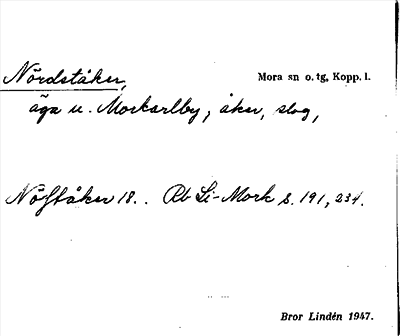 Nördståker,
Mora sn o. tg, Kopp. l.
äga u. Morkarlby, åker, slog,
Nösståker 18.. Rb Li-Mork s. 191, 234.
Bror Lindén 1947.